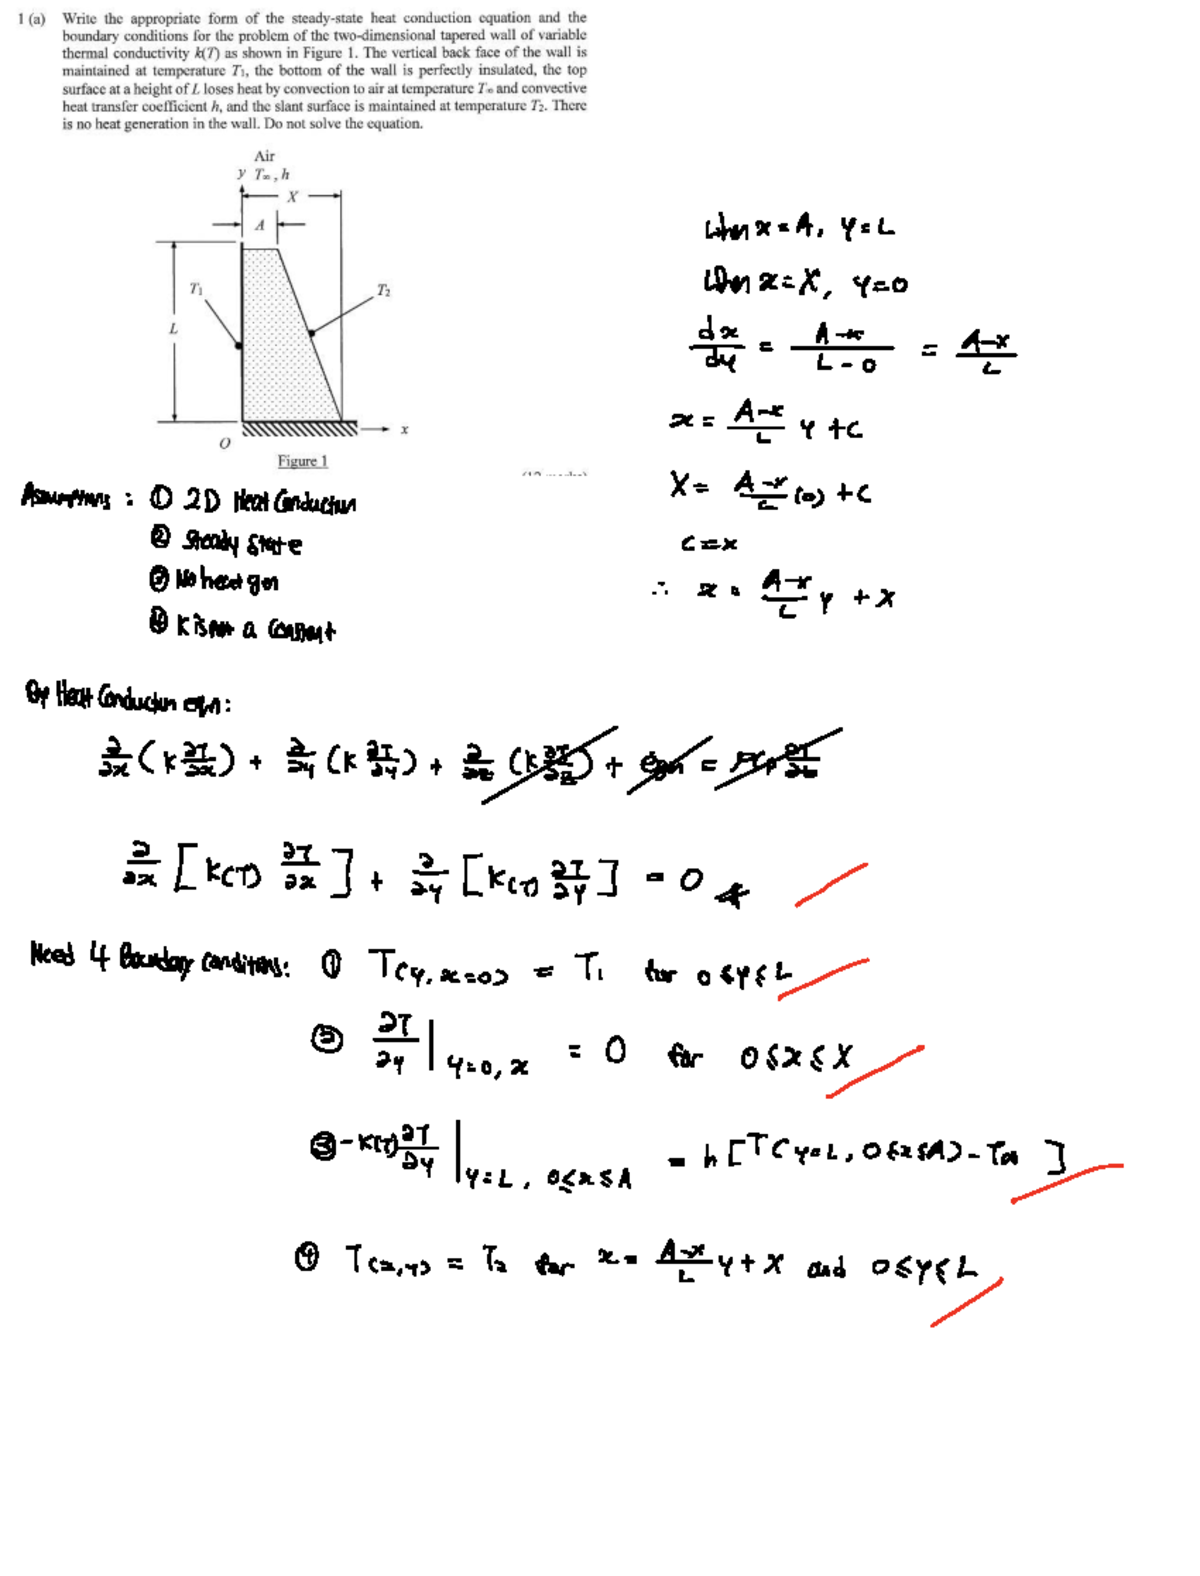 1 (a) Write the appropriate form of the steady-state heat conduction equation and the
boundary conditions for the problem of the two-dimensional tapered wall of variable
thermal conductivity k(T) as shown in Figure 1. The vertical back face of the wall is
maintained at temperature T₁, the bottom of the wall is perfectly insulated, the top
surface at a height of L loses heat by convection to air at temperature T∞ and convective
heat transfer coefficient h, and the slant surface is maintained at temperature T₂. There
is no heat generation in the wall. Do not solve the equation.
Air
y T∞, h
X
A
T₁
T₂
L
O
x
Figure 1
when x = A, y = L
When x = X, y = 0
dx/dy = (A-x)/(L-0) = (A-x)/L
x = (A-x)/L y + C
X = (A-x)/L (0) + C
C = x
∴ x = (A-x)/L y + x
Assumptions : ① 2D Heat Conduction
② Steady State
③ No heat gen
④ K is not a constant
By Heat Conduction eqn :
∂/∂x (k ∂T/∂x) + ∂/∂y (k ∂T/∂y) + ∂/∂z (k ∂T/∂z) + ėgen = ρCp ∂T/∂t
∂/∂x [k(T) ∂T/∂x] + ∂/∂y [k(T) ∂T/∂y] = 0
Need 4 Boundary conditions: ① T(y, x=0) = T₁ for 0≤y≤L
② ∂T/∂y |y=0, x = 0 for 0≤x≤X
③ -k(T) ∂T/∂y |y=L, 0≤x≤A = h [T(y=L, 0≤x≤A) - T∞]
④ T(x,y) = T₂ for x = (A-x)/L y + X and 0≤y≤L